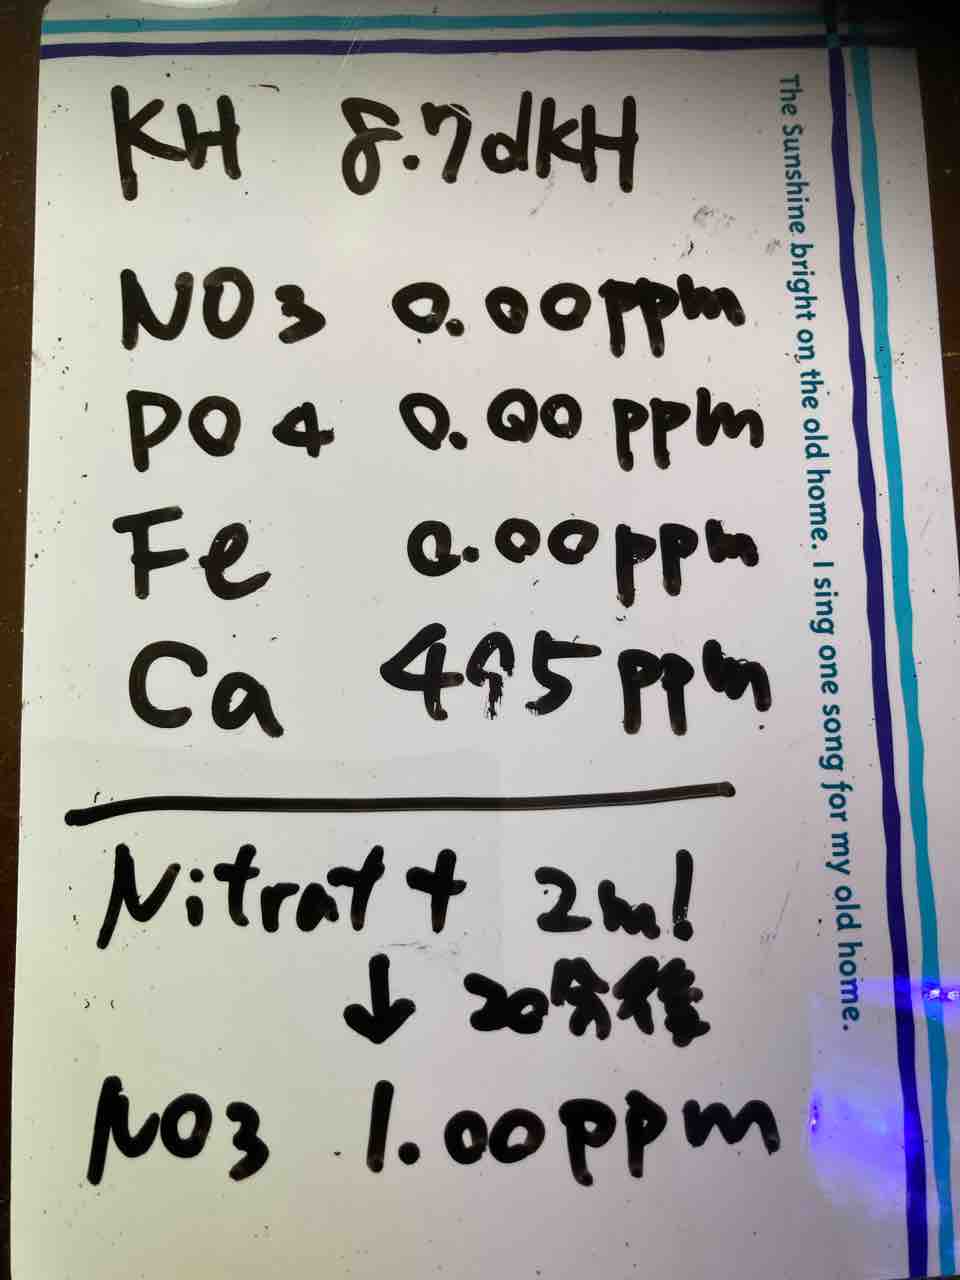 KH 8.7dKH
NO3 0.00ppm
PO4 0.00ppm
Fe 0.00ppm
Ca 495ppm
Nitrat+ 2ml
↓ 20分後
NO3 1.00ppm
The Sunshine bright on the old home. I sing one song for my old home.